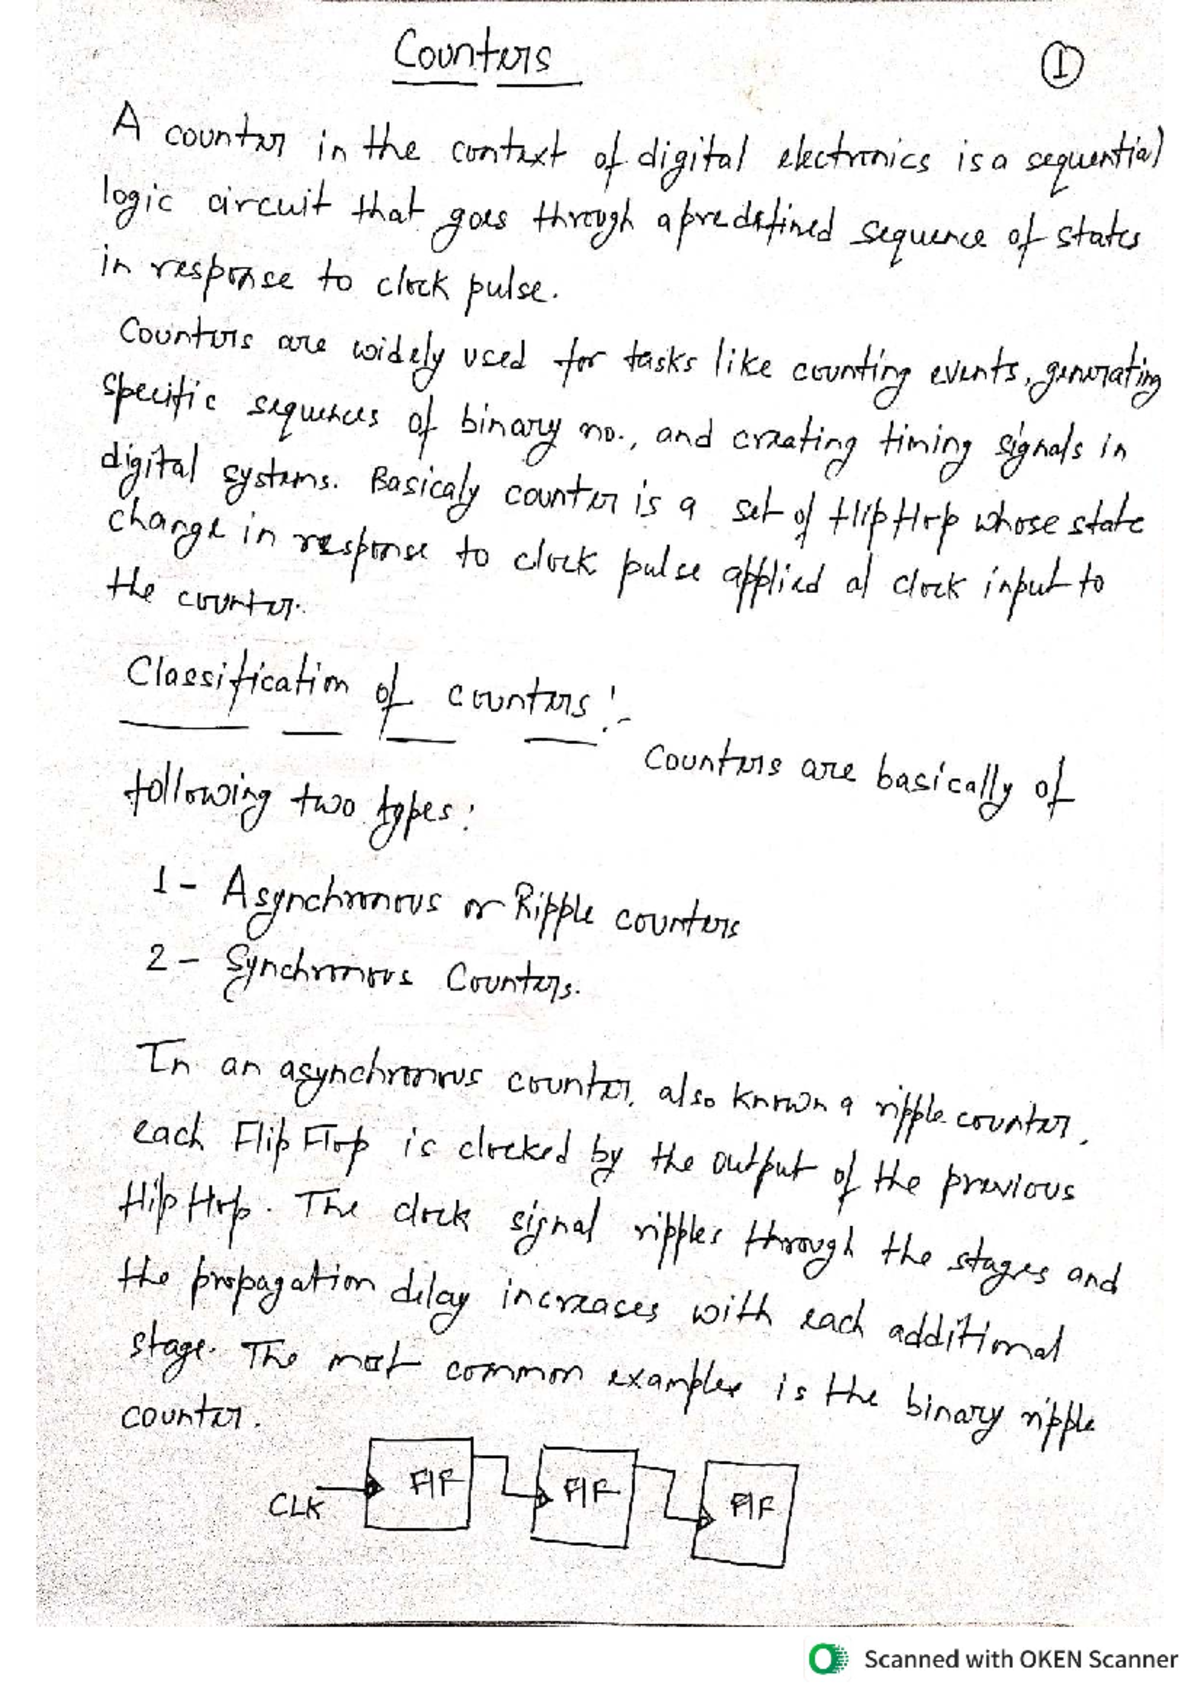 Counters
①
A counter in the context of digital electronics is a sequential
logic circuit that goes through a predefined sequence of states
in response to clock pulse.
Counters are widely used for tasks like counting events, generating
specific sequences of binary no., and creating timing signals in
digital systems. Basicaly counter is a set of flip flop whose state
change in response to clock pulse applied at clock input to
the counter.
Classification of counters:-
Counters are basically of
following two types:
1- Asynchronous or Ripple counters
2- Synchronous Counters.
In an asynchronous counter, also known a ripple counter,
each Flip Flop is clocked by the output of the previous
flip flop. The clock signal ripples through the stages and
the propagation delay increases with each additional
stage. The most common examples is the binary ripple
counter.
CLK F/F F/F F/F
Scanned with OKEN Scanner